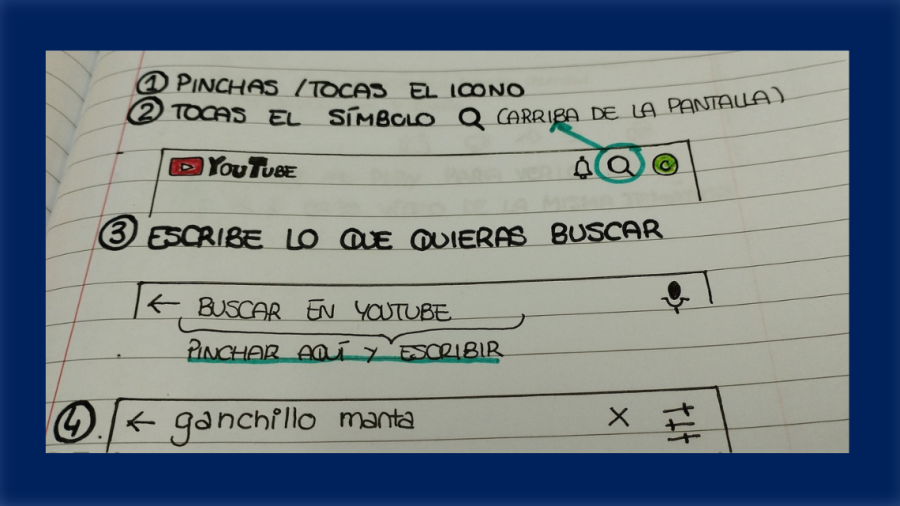 ① PINCHAS / TOCAS EL ICONO
② TOCAS EL SÍMBOLO (ARRIBA DE LA PANTALLA)
YOUTUBE
③ ESCRIBE LO QUE QUIERAS BUSCAR
← BUSCAR EN YOUTUBE
PINCHAR AQUÍ Y ESCRIBIR
④. ← ganchillo manta X